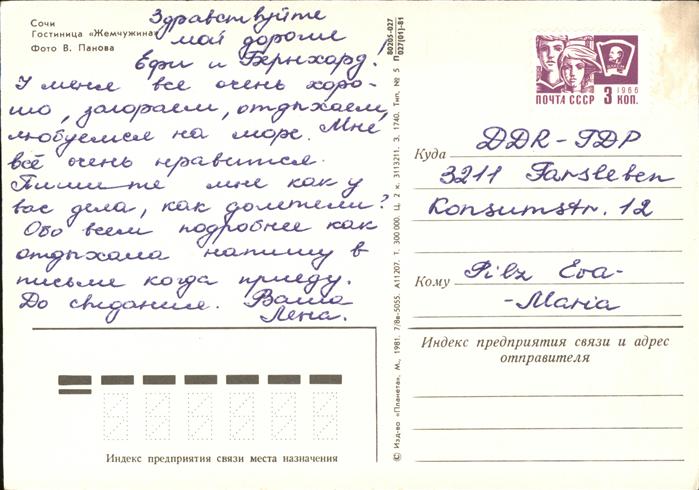 Сочи
Гостиница «Жемчужина»
Фото В. Панова
Здравствуйте
мои дорогие
Ефи и Бернхард!
У меня все очень хоро-
шо, загораем, отдыхаем,
любуемся на море. Мне
всё очень нравится.
Пишите мне как у
вас дела, как долетели?
Обо всем подробнее как
отдыхала напишу в
письме когда приеду.
До свидания. Ваша
Лена.
80205-027
П 027(01)-81
© Изд-во «Планета». М., 1981. 7/8в-5055. А11207. Т. 300 000. Ц. 2 к. 3113211. З. 1740. Тип. № 5
ВЛКСМ
1966
ПОЧТА СССР 3 КОП.
Куда DDR-ГДР
3211 Farsleben
Konsumstr. 12
Кому Pilz Eva-
-Maria
Индекс предприятия связи и адрес
отправителя
Индекс предприятия связи места назначения